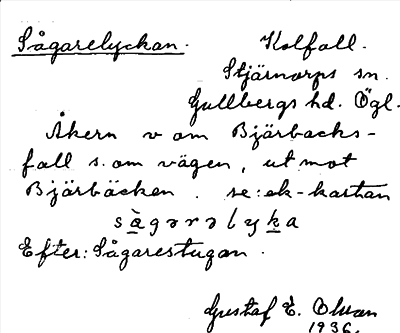 Sågarelyckan. Kolfall.
Stjärnorps sn.
Gullbergs hd. Ögl.
Åkern v om Bjärbacks-
fall s. om vägen, ut mot
Bjärbäcken. se: ek-kartan
sàgərəlyka
Efter: Sågarestugan.
Gustaf E. Olsson
1936.